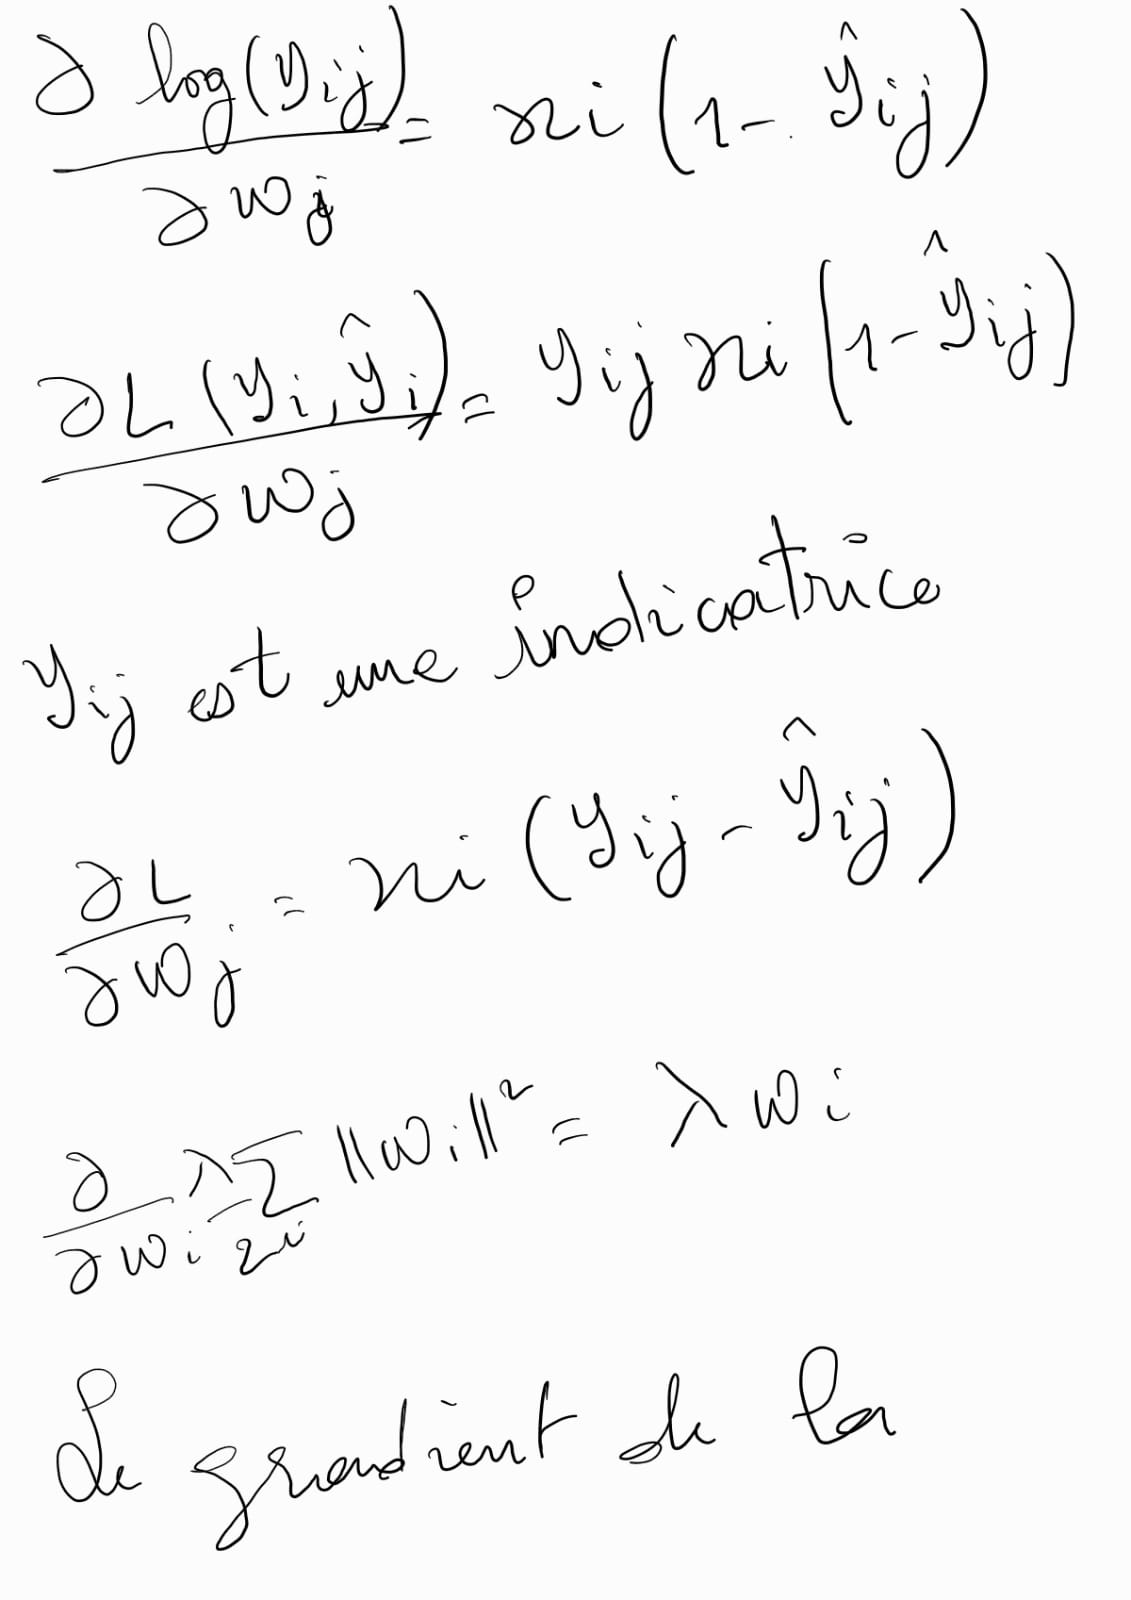 ∂ log(yij) / ∂wj = xi (1 - ŷij)
∂L(yi, ŷi) / ∂wj = yij xi (1 - ŷij)
yij est une indicatrice
∂L / ∂wj = xi (yij - ŷij)
∂ / ∂wi λ/2 Σi ||wi||² = λ wi
Le gradient de la